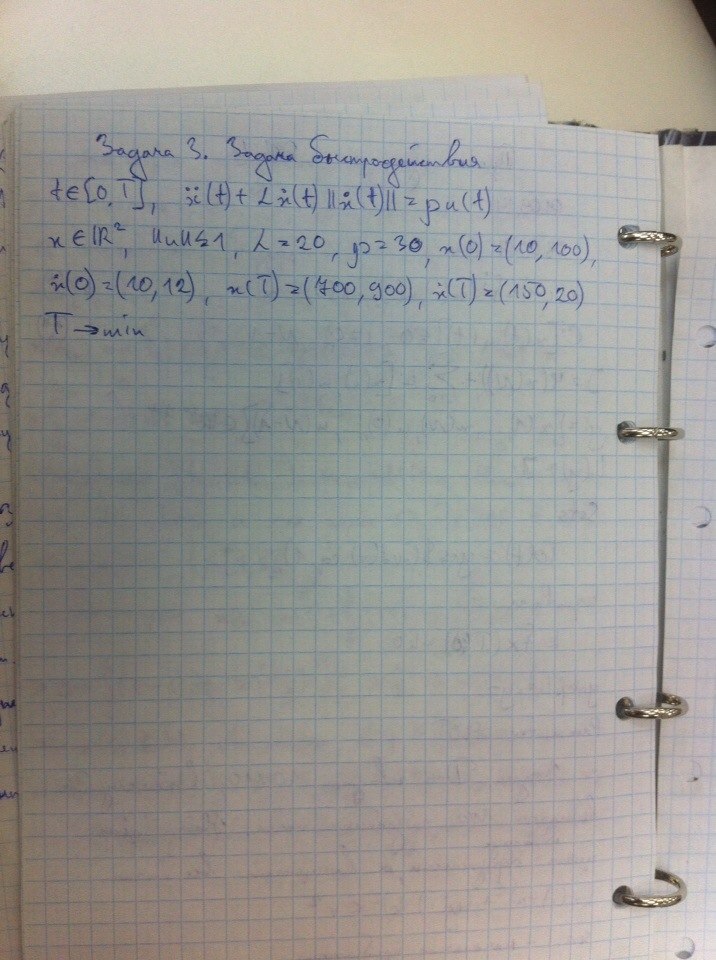 Задача 3. Задача быстродействия
t∈[0,T], ẍ(t) + L ẋ(t) ||ẋ(t)|| = pu(t)
x ∈ ℝ², ||u||≤1, L = 20, p = 30, x(0) = (10, 100),
ẋ(0) = (10, 12), x(T) = (700, 900), ẋ(T) = (150, 20)
T → min